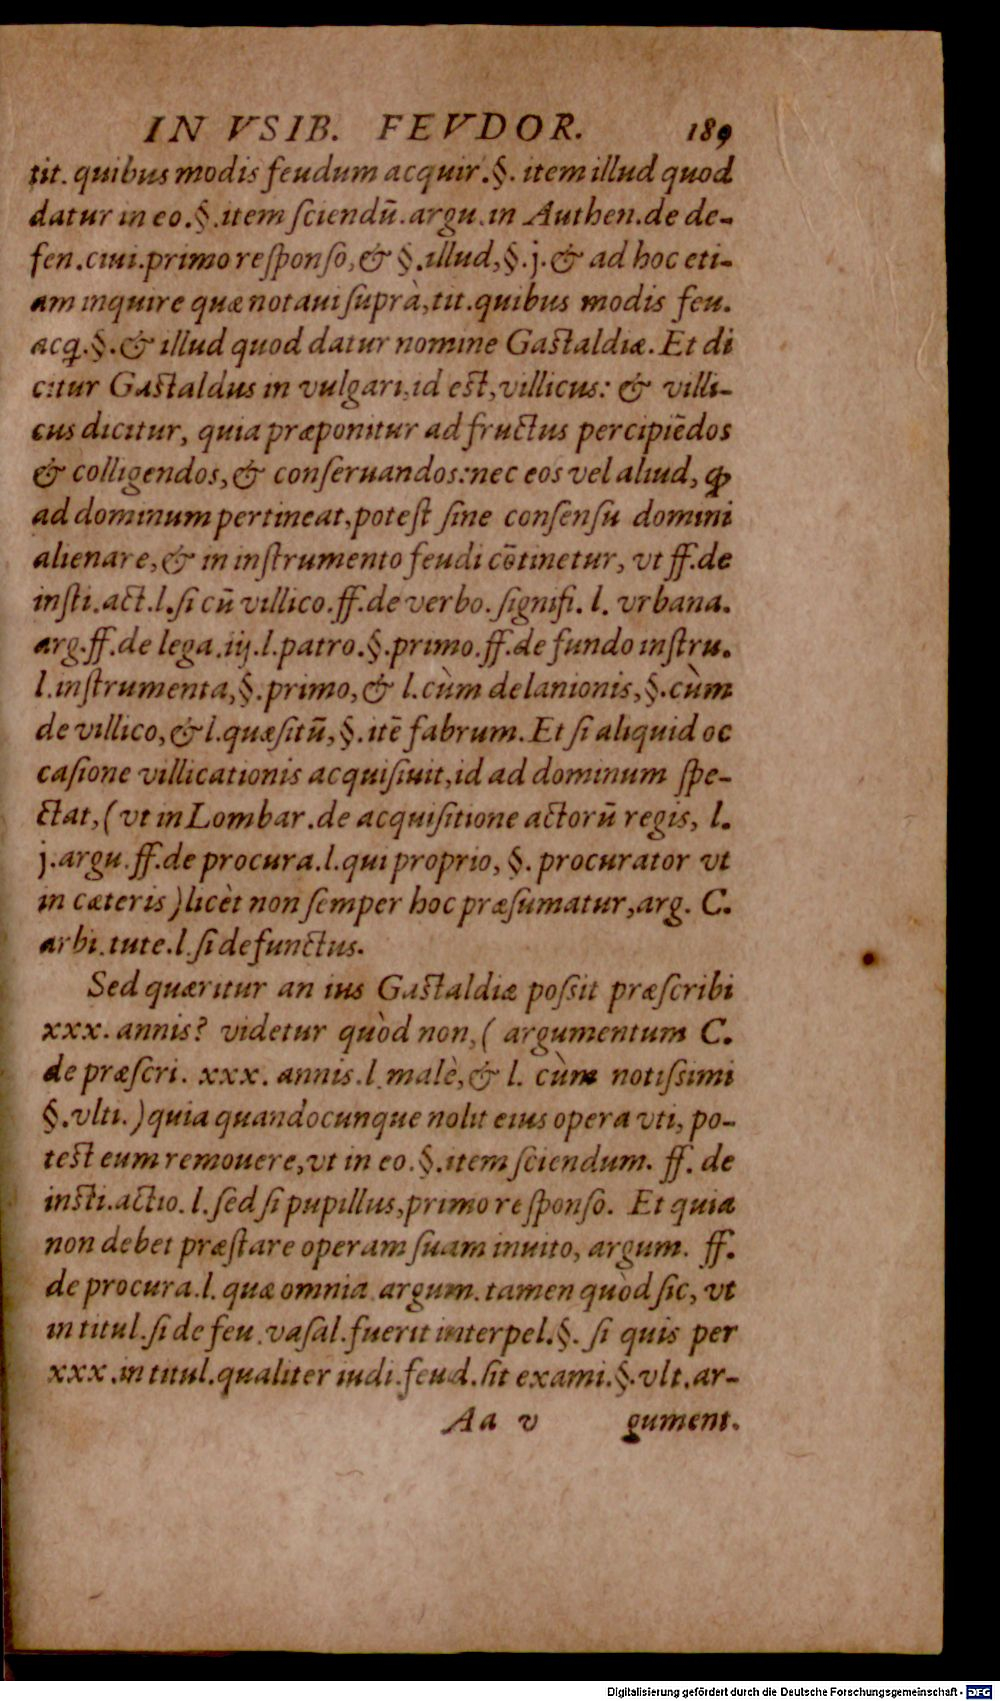 IN VSIB. FEVDOR. 189
tit. quibus modis feudum acquir.§. item illud quod
datur in eo.§.item ſciendū.argu.in Authen.de de-
fen.ciui.primo reſponſo,& §.illud,§.j.& ad hoc eti-
am inquire quæ notaui ſuprà,tit.quibus modis feu.
acq.§.& illud quod datur nomine Gaſtaldiæ.Et di
citur Gaſtaldus in vulgari,id eſt,villicus: & villi-
cus dicitur, quia præponitur ad fructus percipiēdos
& colligendos,& conſeruandos:nec eos vel aliud, ꝙ
ad dominum pertineat,poteſt ſine conſenſu domini
alienare,& in inſtrumento feudi cōtinetur, vt ff.de
inſti.act.l.ſi cū villico.ff.de verbo.ſignifi.l. vrbana.
arg.ff.de lega.iij.l.patro.§.primo.ff.de fundo inſtru.
l.inſtrumenta,§.primo,& l.cùm delanionis,§.cùm
de villico,& l.quæſitū,§.itē fabrum.Et ſi aliquid oc
caſione villicationis acquiſiuit,id ad dominum ſpe-
ctat,(vt in Lombar.de acquiſitione actorū regis, l.
j.argu.ff.de procura.l.qui proprio, §. procurator vt
in cæteris)licèt non ſemper hoc præſumatur,arg. C.
arbi.tute.l.ſi defunctus.
Sed quæritur an ius Gaſtaldiæ poſsit præſcribi
xxx. annis? videtur quòd non,( argumentum C.
de præſcri. xxx. annis.l.malè,& l. cùm notiſsimi
§.vlti.)quia quandocunque nolit eius opera vti, po-
teſt eum remouere,vt in eo.§.item ſciendum. ff. de
inſti.actio. l.ſed ſi pupillus,primo reſponſo. Et quia
non debet præſtare operam ſuam inuito, argum. ff.
de procura.l. quæ omnia argum. tamen quòd ſic, vt
in titul.ſi de feu.vaſal.fuerit interpel.§. ſi quis per
xxx.in titul.qualiter iudi.feud.ſit exami.§.vlt.ar-
Aa v gument.
Digitalisierung gefördert durch die Deutsche Forschungsgemeinschaft - DFG